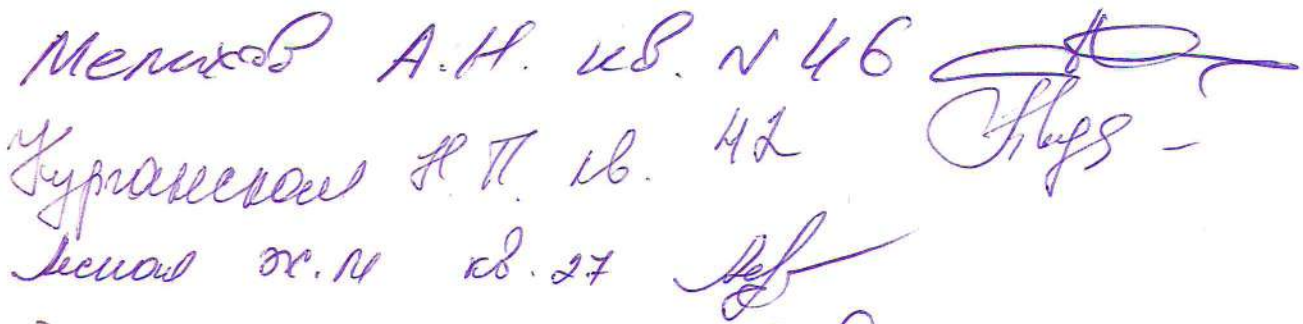 Мелахов А.Н. кв. N 46
Курганская Н.П. кв. 42
Лесная Ж.М кв. 27